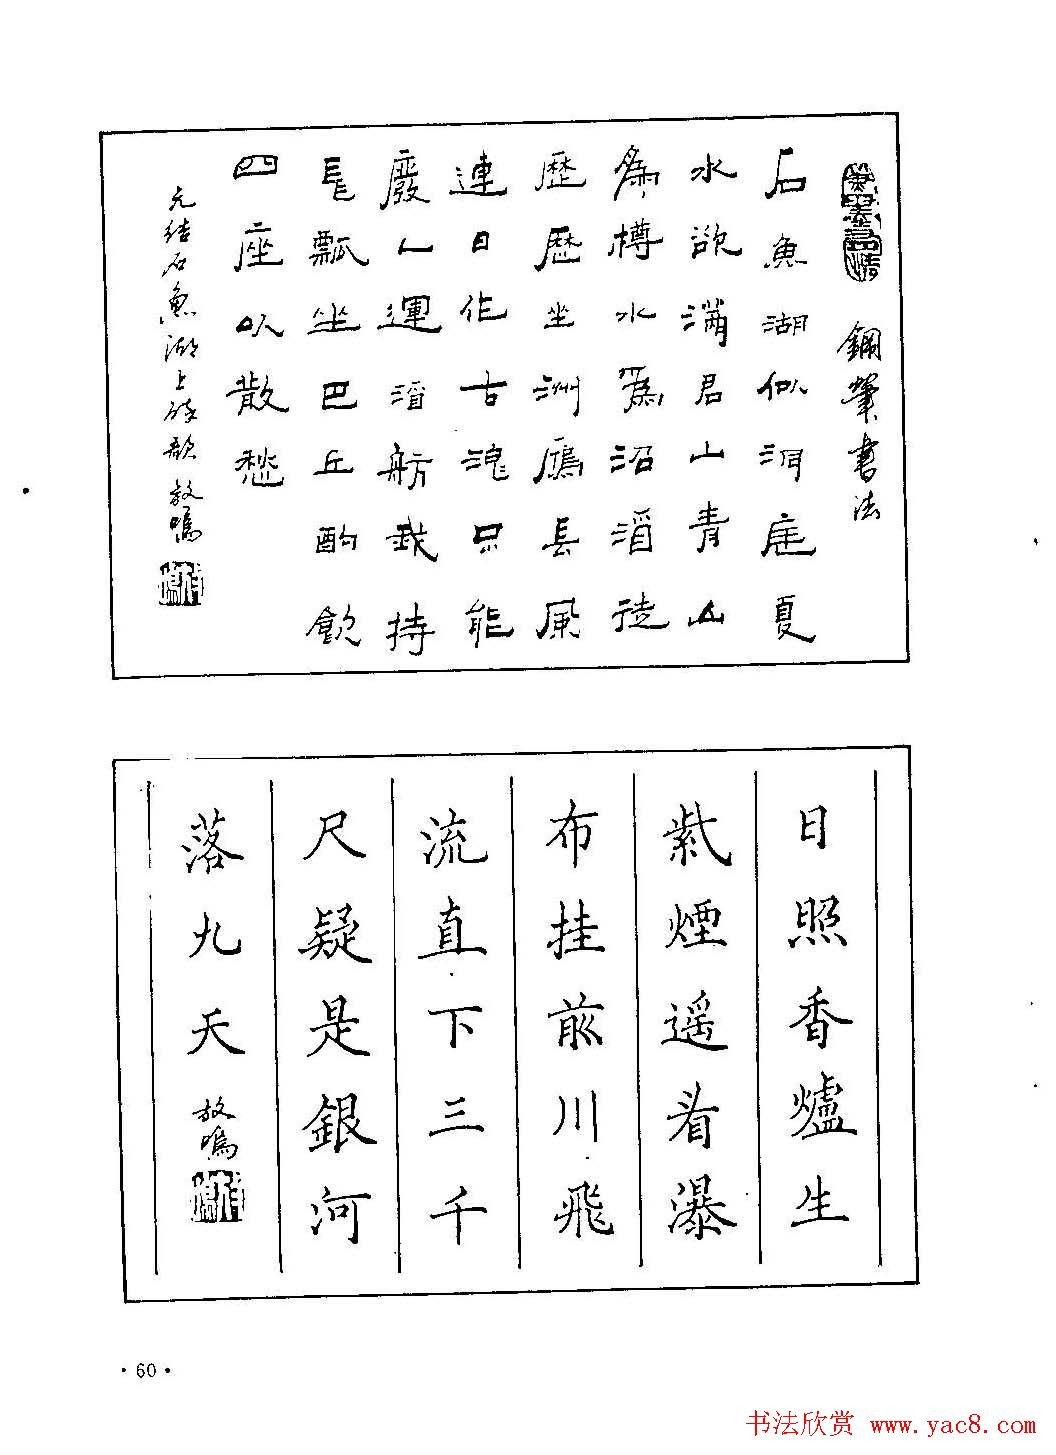 鋼筆書法
石魚湖似洞庭夏
水欲滿君山青山
為樽水為沼酒徒
歷歷坐洲島長風
連日作大浪不能
廢人運酒舫我持
長瓢坐巴丘酌飲
四座以散愁
元結石魚湖上醉歌 放鳴
日照香爐生
紫煙遥看瀑
布挂前川飛
流直下三千
尺疑是銀河
落九天
放鳴
·60·
书法欣赏 www.yac8.com